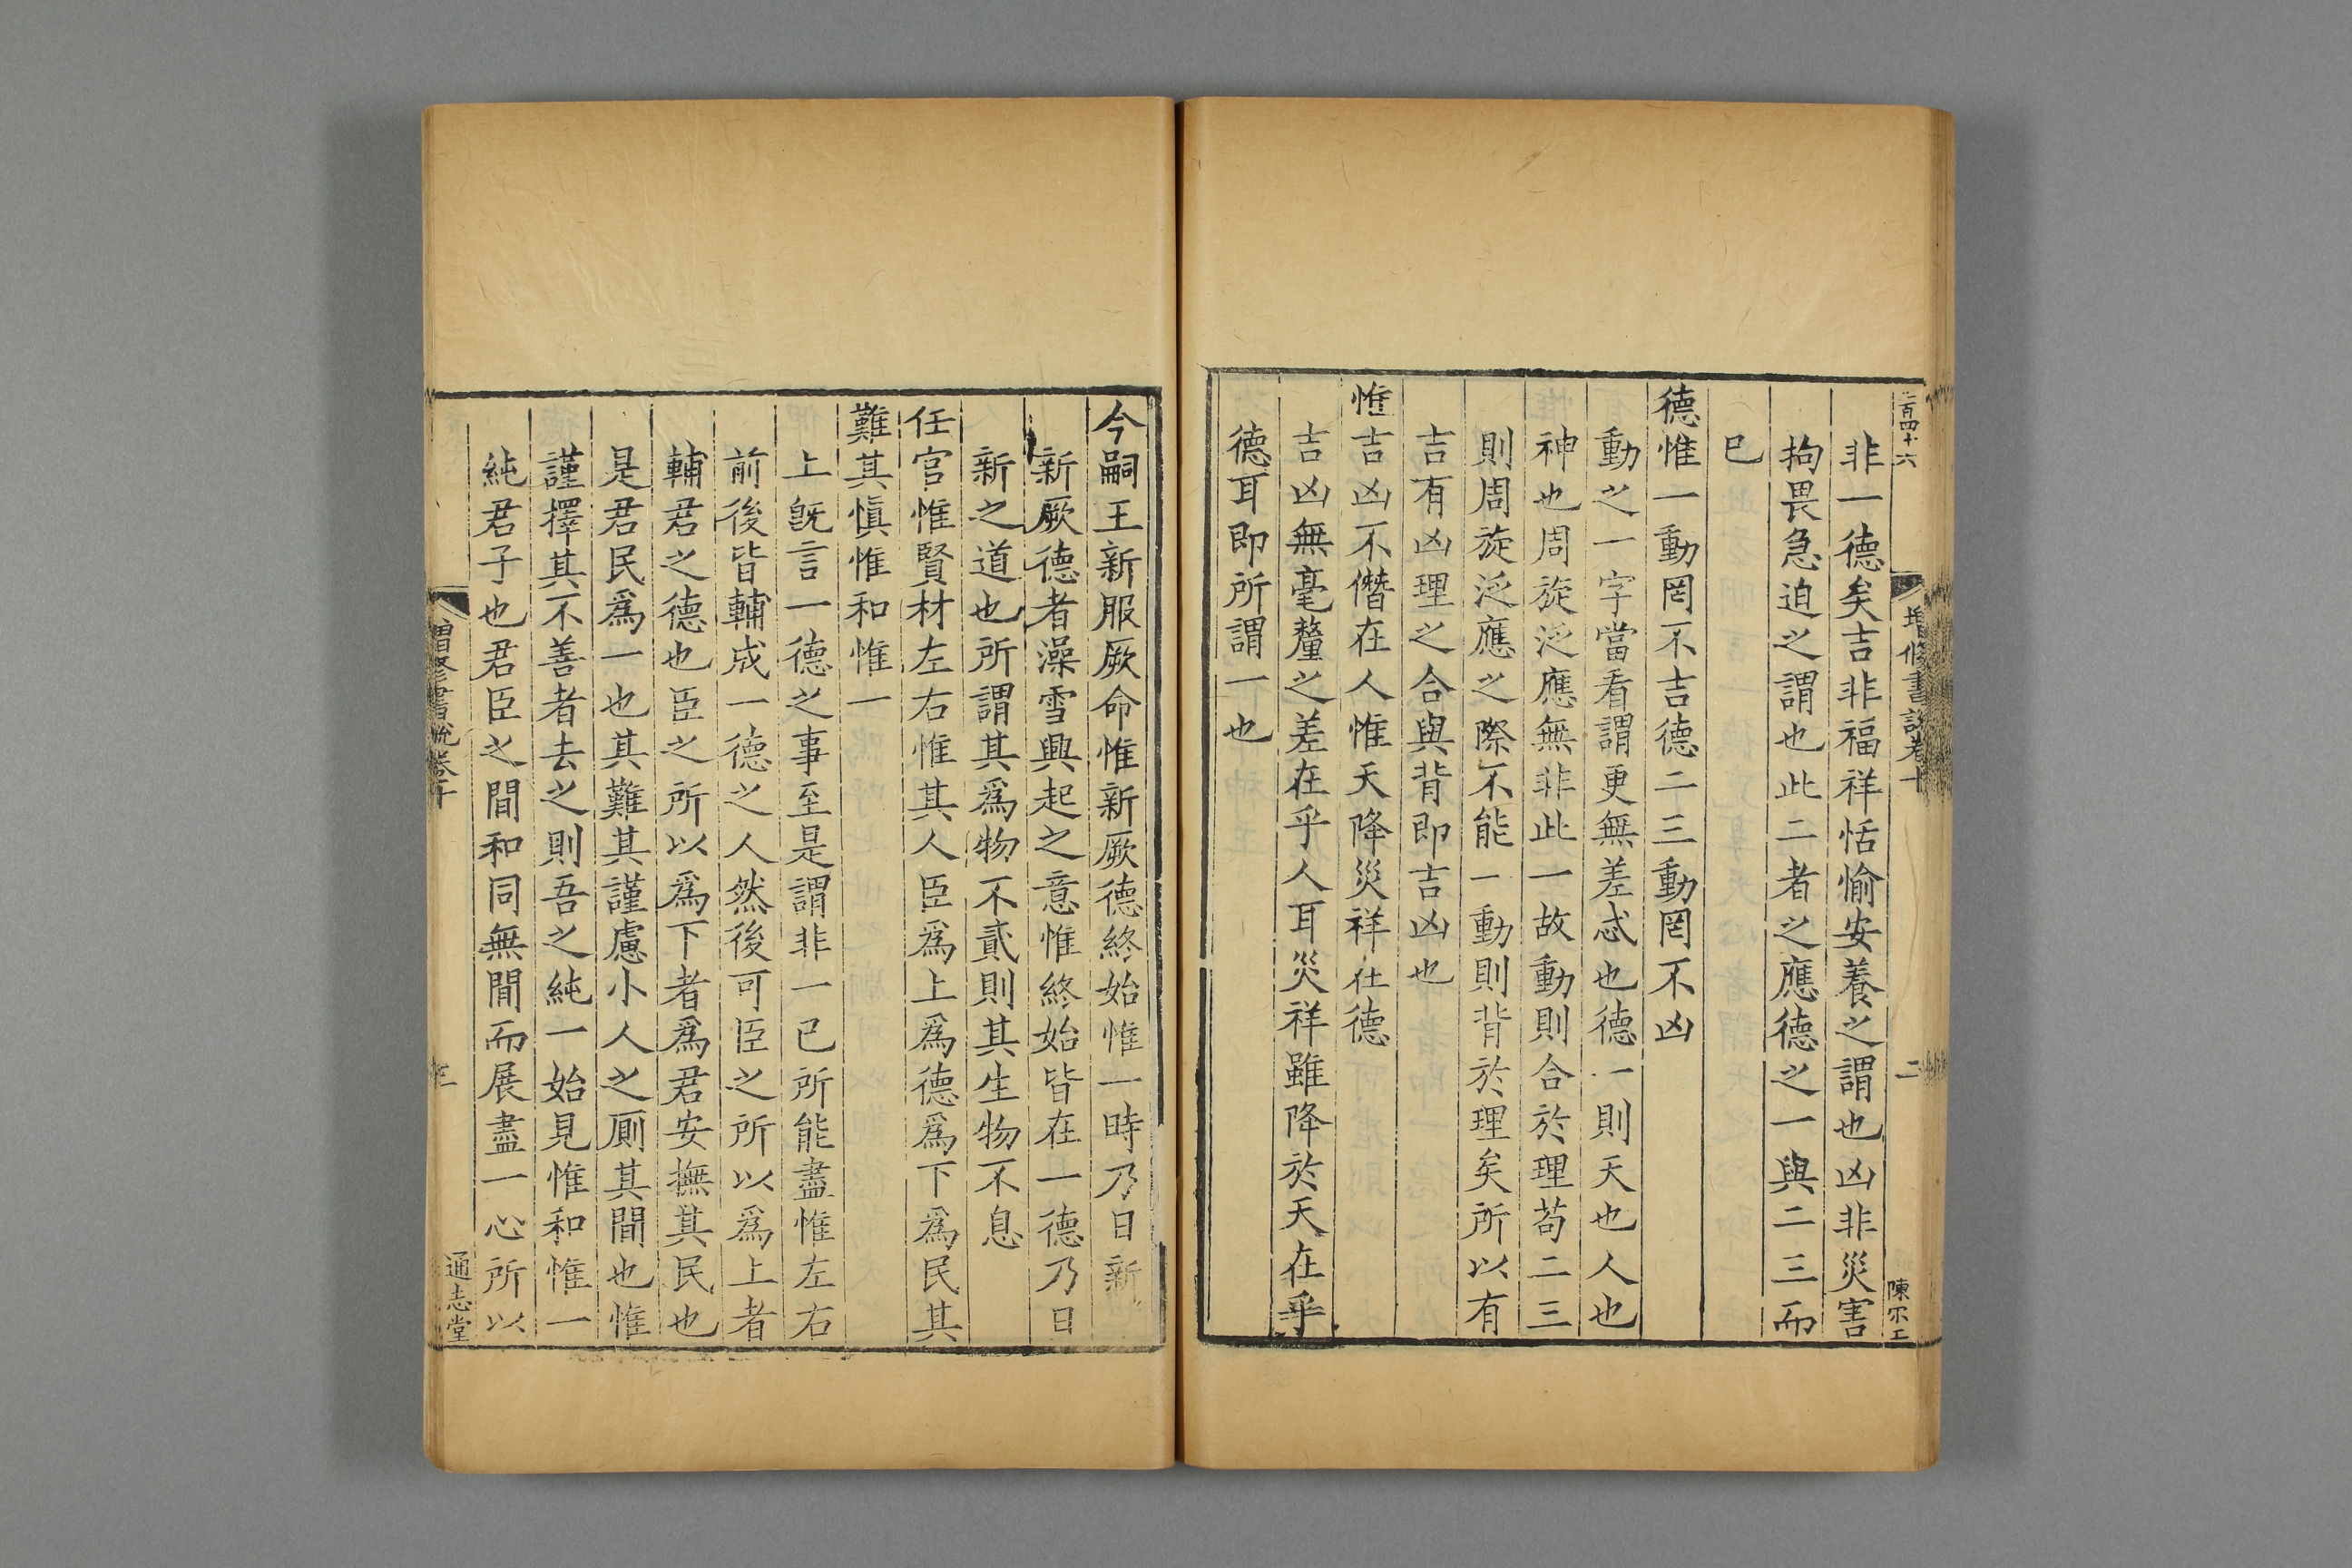 百四十六
增修書說卷十
二
非一德矣吉非福祥恬愉安養之謂也凶非災害
拘畏急迫之謂也此二者之應德之一與二三而
已
德惟一動罔不吉德二三動罔不凶
動之一字當看謂更無差忒也德一則天也人也
神也周旋泛應無非此一故動則合於理苟二三
則周旋泛應之際不能一動則背於理矣所以有
吉有凶理之合與背即吉凶也
惟吉凶不僭在人惟天降災祥在德
吉凶無毫釐之差在乎人耳災祥雖降於天在乎
德耳即所謂一也
今嗣王新服厥命惟新厥德終始惟一時乃日新
新厥德者澡雪興起之意惟終始皆在一德乃日
新之道也所謂其為物不貳則其生物不息
任官惟賢材左右惟其人臣為上為德為下為民其
難其慎惟和惟一
上旣言一德之事至是謂非一已所能盡惟左右
前後皆輔成一德之人然後可臣之所以為上者
輔君之德也臣之所以為下者為君安撫其民也
是君民為一也其難其謹慮小人之厠其間也惟
謹擇其不善者去之則吾之純一始見惟和惟一
純君子也君臣之間和同無間而展盡一心所以
增修書說卷十
通志堂